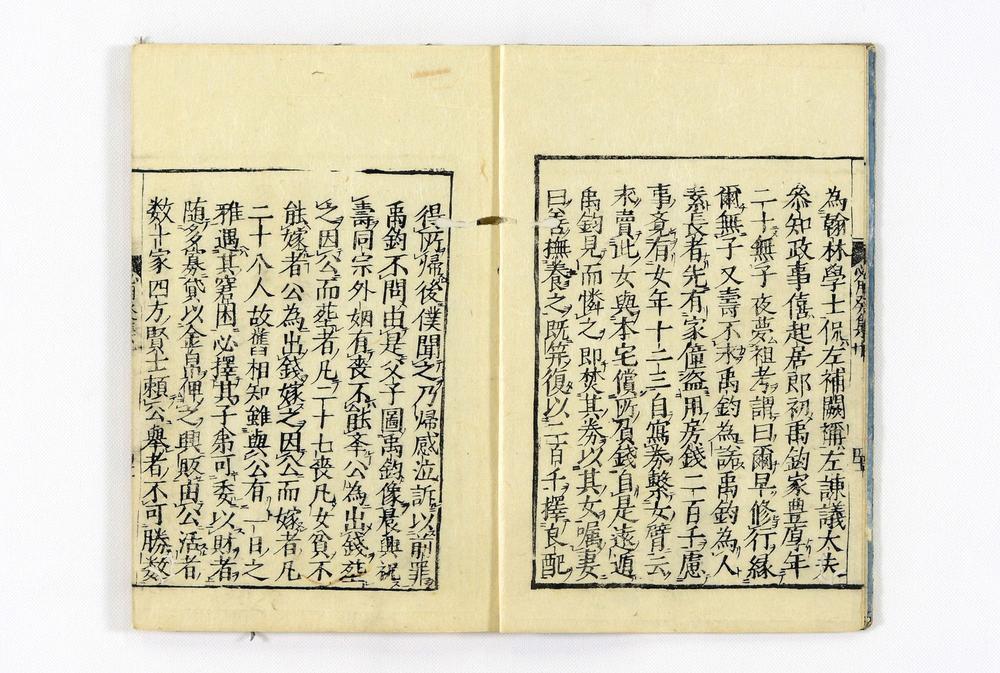 為翰林學士侃左補闕偁左諫議大夫
叅知政事僖起居郎初禹鈞家豊厚年
二十無子夜夢祖考謂曰爾早修行縁
爾無子又壽不永禹鈞為諾禹鈞為人
素長者先有家僮盗用房錢二百千慮
事竟有女年十二三自寫券繫女臂云
永賣此女與本宅償所負錢自是遠遁
禹鈞見而憐之即焚其券以其女囑妻
曰善撫養之既笄復以二百千擇良配
得所帰後僕聞之乃帰感泣訴以前罪
禹鈞不問由是父子圖禹鈞像晨興祝
壽同宗外姻有喪不能奉公為出錢塟
之因公而塟者凡二十七喪凡女貧不
能嫁者公為出錢嫁之因公而嫁者凡
二十八人故舊相知雖與公有一日之
雅遇其窘困必擇其子弟可委以財者
随多寡貸以金帛俾之興販由公活者
数十家四方賢士頼公舉者不可勝数